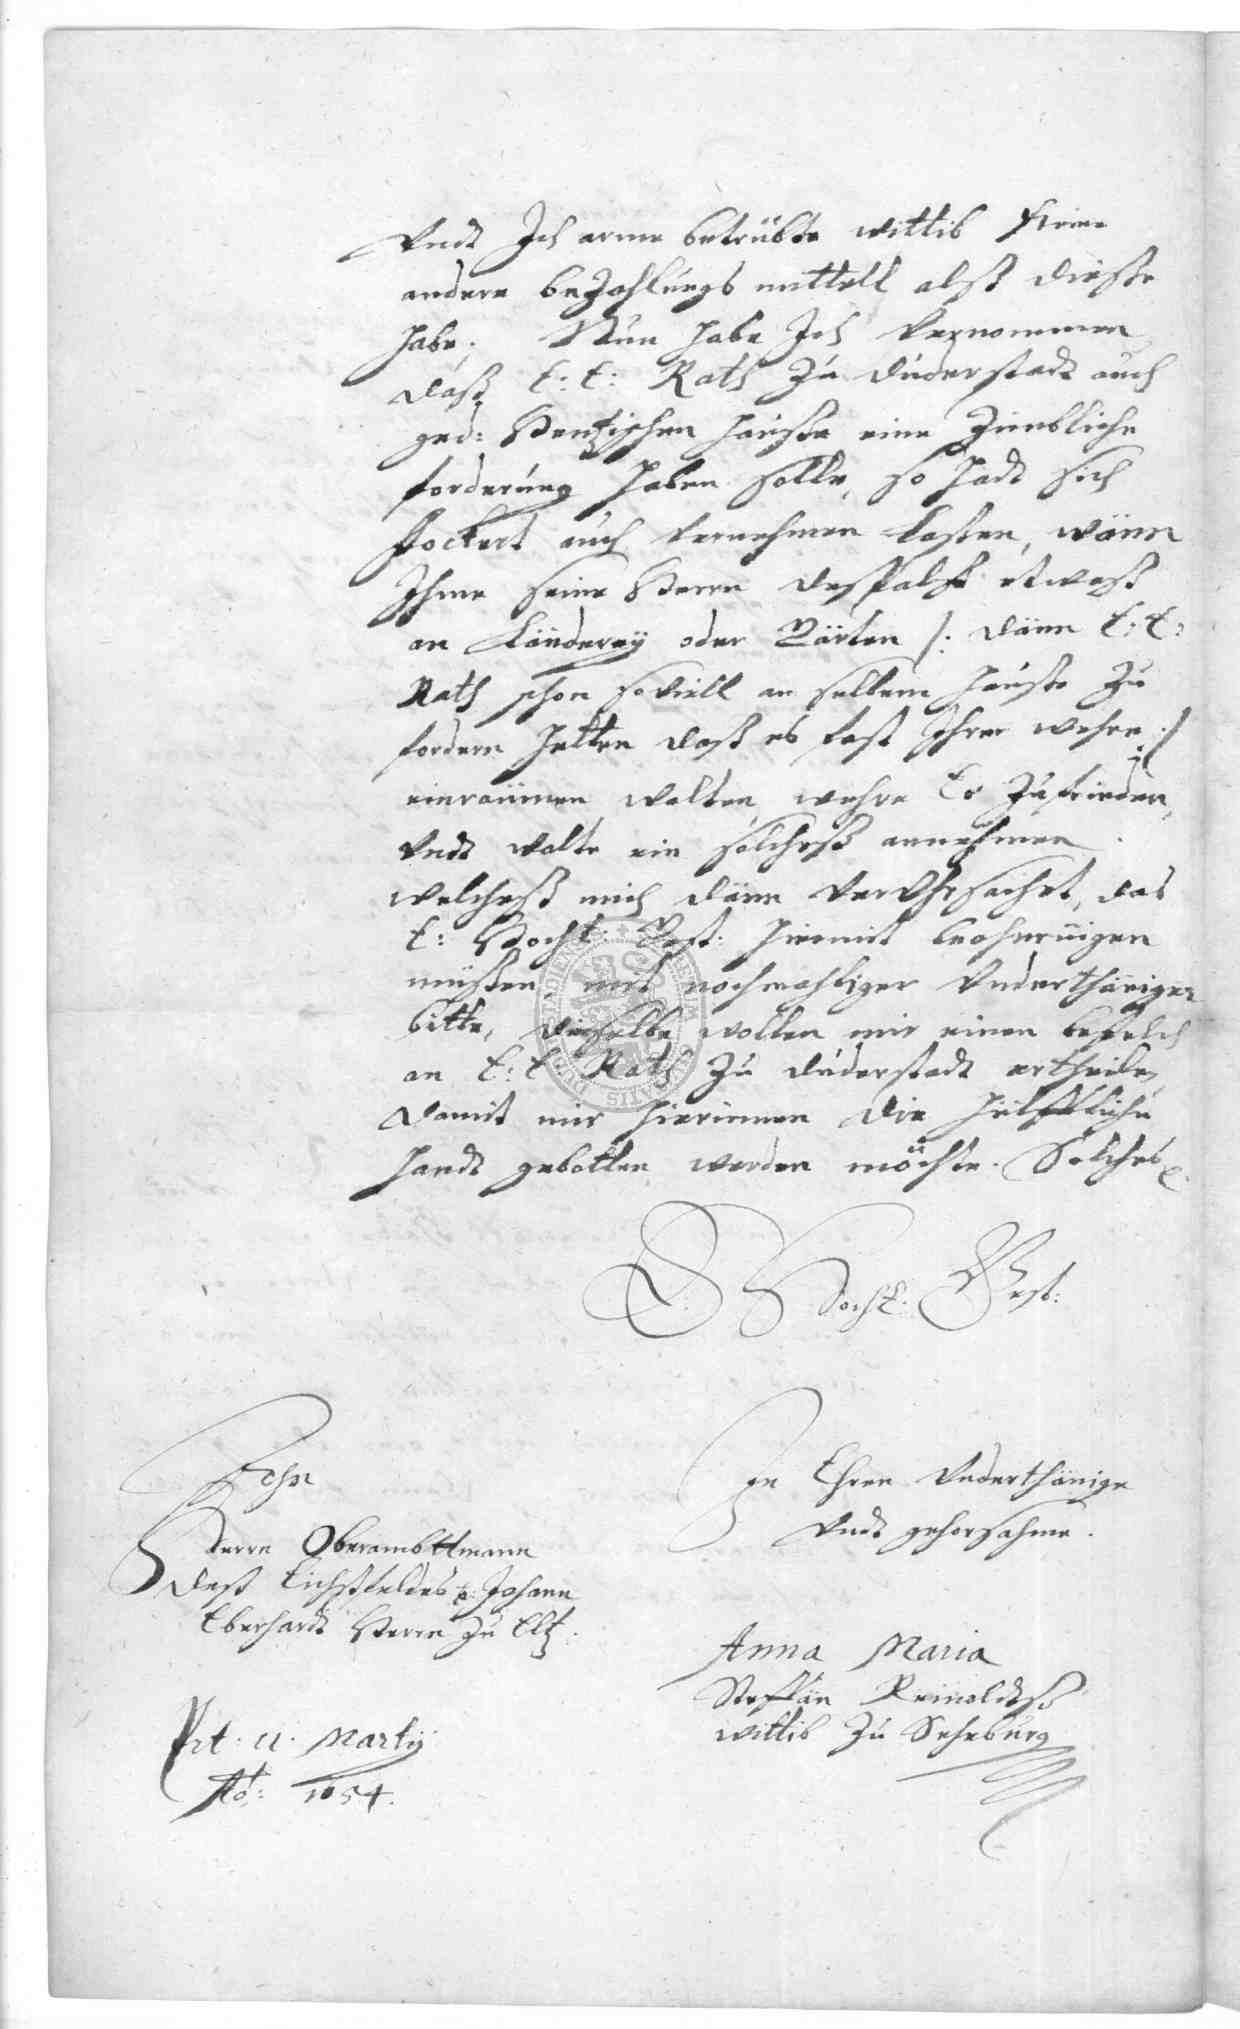 Vndt Ich arme betrübte wittib keine
andere bezahlungs mittell alß dießse
habe. Nun habe Ich vernommen
daß E: E: Rath zu duderstadt auch
ged: Hentzischen hauße eine Zimbliche
forderung haben solle, so hadt sich
Hockert auch vernehmen laßen, wänn
Ihme seine Herrn deßhalb etwaß
an Länderey oder Gärten /: dänn E: E:
Rath schon soviell an selbem hauße zu
fordern hetten daß es fast Ihrer wehre :/
einraümen wolten, wehre Er zufrieden,
Vndt wolte ein solcheß annehmen.
welcheß mich dänn verVhrsachet, das
E: HochE: Vest: hiermit
müßen mit nochmahliger Vnderthäniger
bitte, dieselbe wollen mir einen befelch
an E: E: Rath zu duderstadt ertheilen
damit mir hierinnen die hilffliche
handt gebotten werden möchte. Solches
E: HochE: Vest:
Ahn
Herrn Oberambttmann
deß Eichßfeldes p: Johann
Eberhardt Herrn zu Eltz.
In Ehren Vnderthänige
Vndt gehorsahme.
Anna Maria
Steffän Reinoldtß
wittib zu Seheburg
Prt: 11. Martij
Ao: 1654.